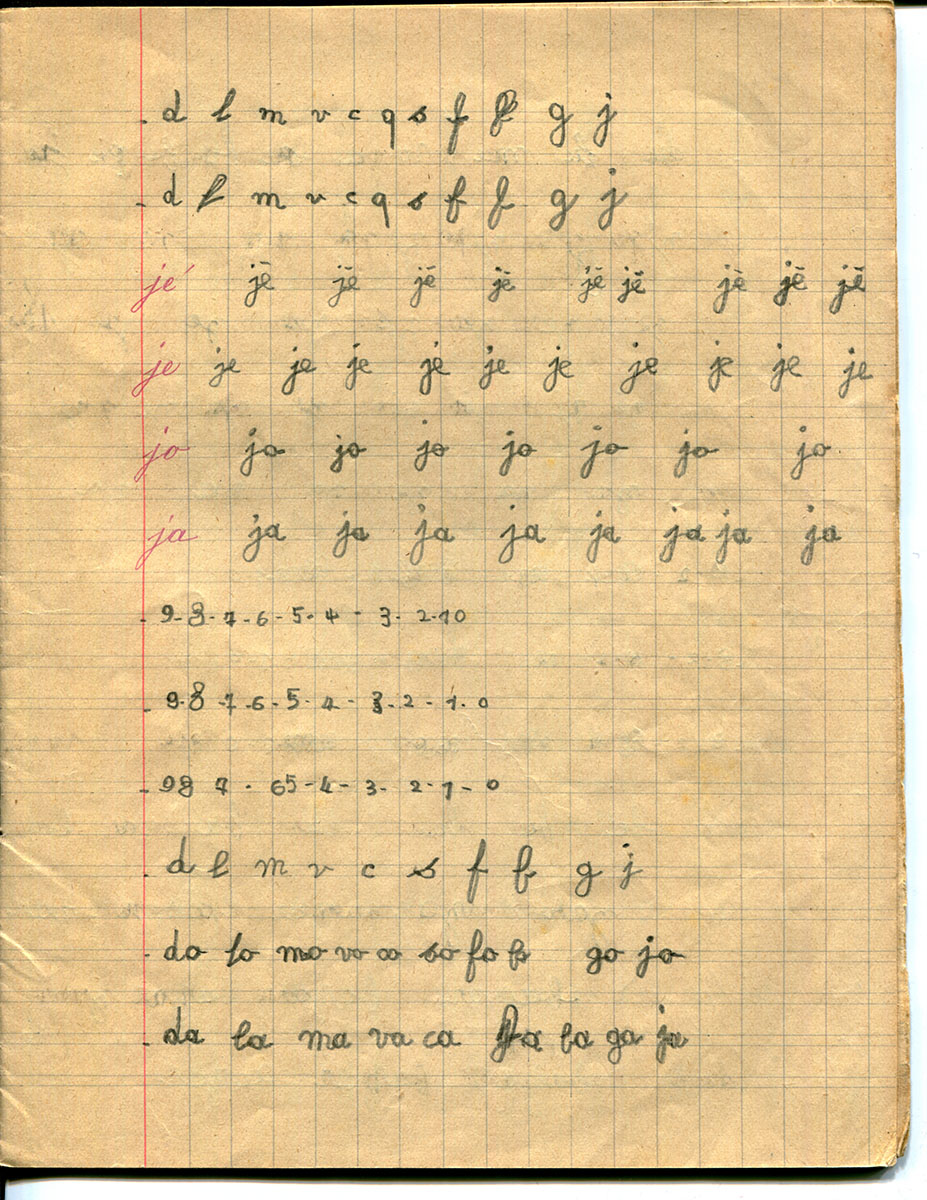 - d l m v c q s f f g j
- d l m v c q s f f g j
jé jê jê jê jê jê jê jê jê jê
je je je je je je je je je je je
jo jo jo jo jo jo jo jo
ja ja ja ja ja ja ja ja ja
- 9-8-7-6-5-4-3-2-10
- 9-8 7-6-5-4-3-2-1-0
- 98 7-65-4-3-2-1-0
- d l m v c s f b g j
- do lo mo vo co so fo bo go jo
- da la ma va ca fa ba ga ja